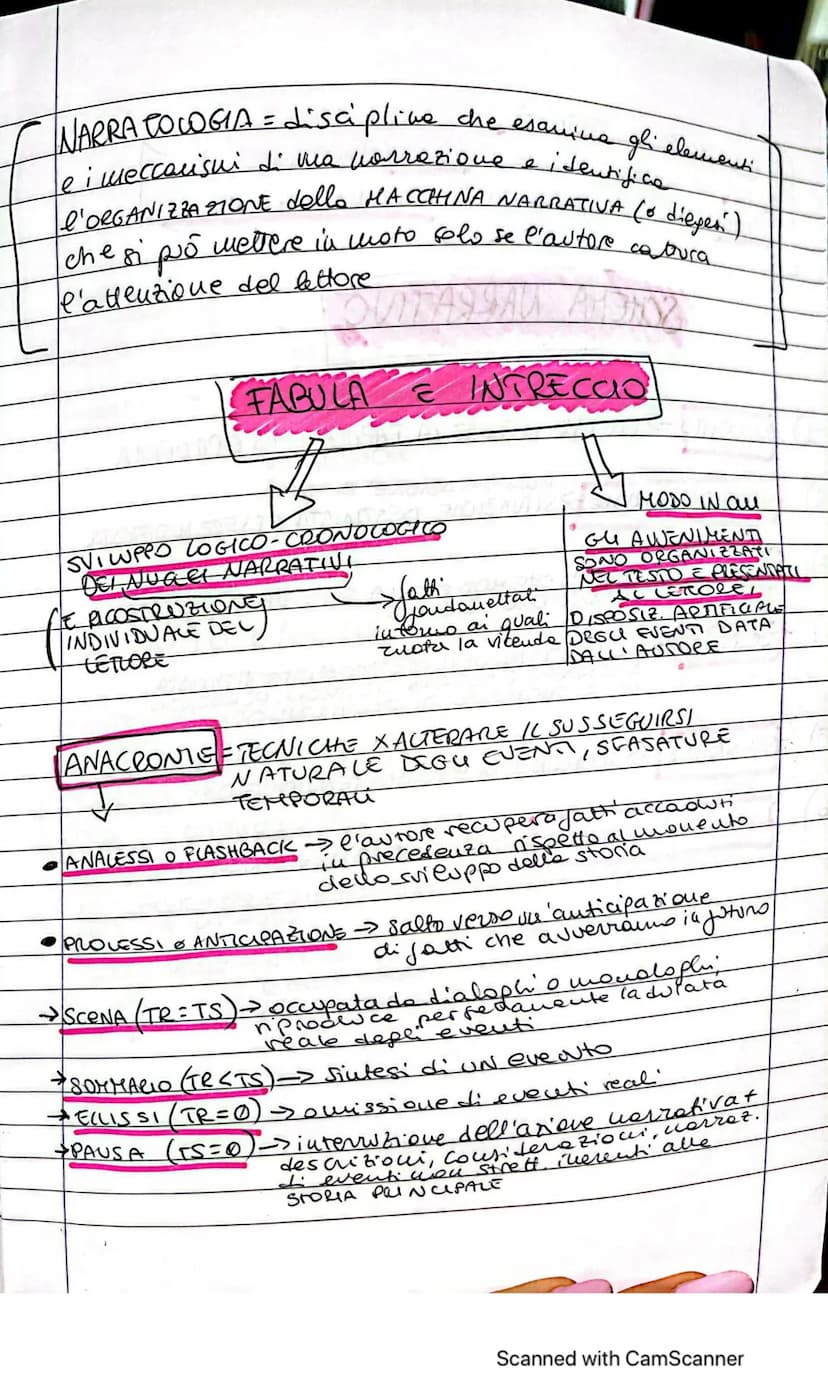 NARRATOLOGIA = disciplina che esamina gli elementi
e i meccanismi di una narrazione e identifica
l'ORGANIZZAZIONE della MACCHINA NARRATIVA (o diegesi)
che si può mettere in moto solo se l'autore cattura
l'attenzione del lettore
SCHEMA NARRATIVO
FABULA E INTRECCIO
SVILUPPO LOGICO-CRONOLOGICO
DEI NUCLEI NARRATIVI
(E RICOSTRUZIONE)
INDIVIDUALE DEL
LETTORE
fatti
fondamentali
intorno ai quali
ruota la vicenda
MODO IN CUI
GLI AVVENIMENTI
SONO ORGANIZZATI
NEL TESTO E PRESENTATI
AL LETTORE,
DISPOSIZ. ARTIFICIALE
DEGLI EVENTI DATA
DALL'AUTORE
ANACRONIE = TECNICHE X ALTERARE IL SUSSEGUIRSI
NATURALE DEGLI EVENTI, SFASATURE
TEMPORALI
• ANALESSI O FLASHBACK → l'autore recupera fatti accaduti
in precedenza rispetto al momento
dello sviluppo della storia
• PROLESSI o ANTICIPAZIONE → salto verso un'anticipazione
di fatti che avverranno in futuro
→ SCENA (TR=TS) → occupata da dialoghi o monologhi,
riproduce perfettamente la durata
reale degli eventi
→ SOMMARIO (TR<TS) → sintesi di un evento
→ ELLISSI (TR=0) → omissione di eventi reali
→ PAUSA (TS=0) → interruzione dell'azione narrativa +
descrizioni, considerazioni, narraz.
di eventi non strett. inerenti alla
STORIA PRINCIPALE
Scanned with CamScanner